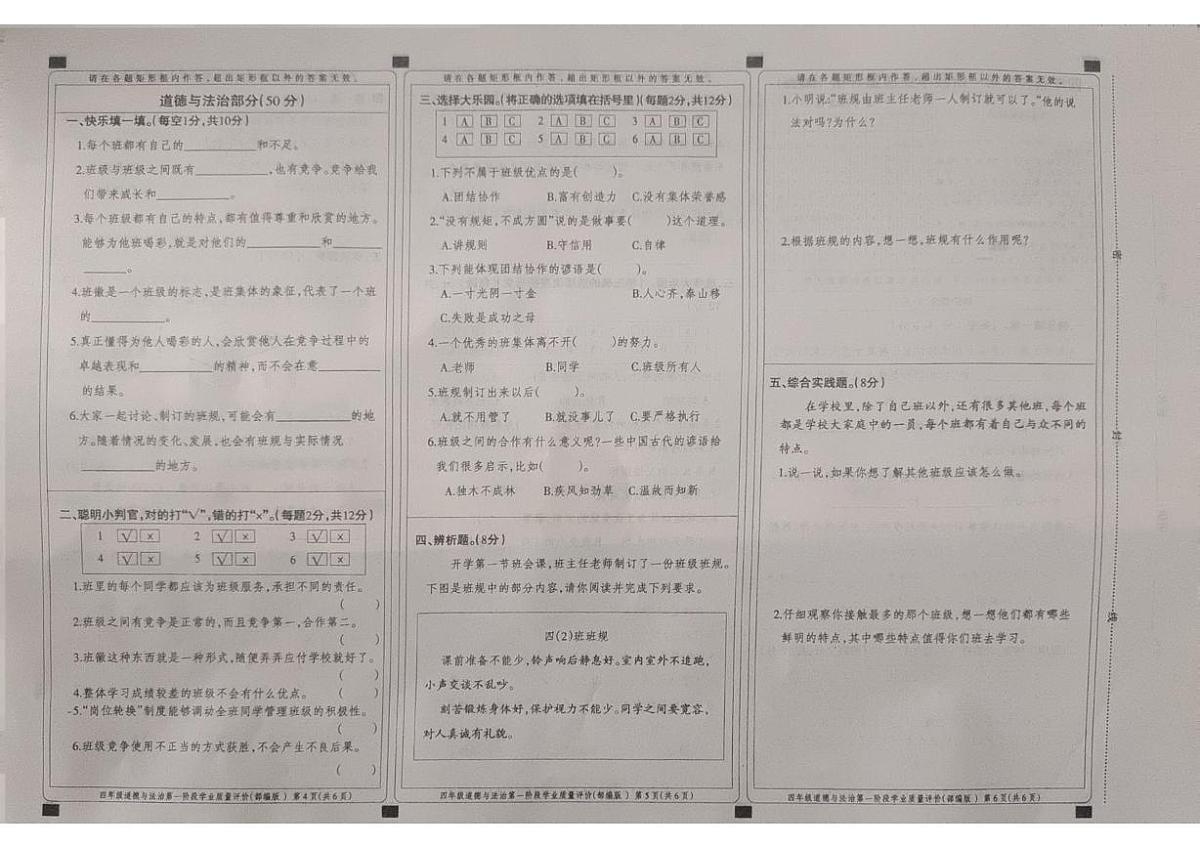 请在各题矩形框内作答,超出矩形框以外的答案无效。
道德与法治部分(50分)
一、快乐填一填。(每空1分,共10分)
1.每个班都有自己的__________和不足。
2.班级与班级之间既有__________,也有竞争。竞争给我
们带来成长和__________。
3.每个班级都有自己的特点,都有值得尊重和欣赏的地方。
能够为他班喝彩,就是对他们的__________和__________
______。
4.班徽是一个班级的标志,是班集体的象征,代表了一个班
的__________。
5.真正懂得为他人喝彩的人,会欣赏他人在竞争过程中的
卓越表现和__________的精神,而不会在意__________
的结果。
6.大家一起讨论、制订的班规,可能会有__________的地
方。随着情况的变化、发展,也会有班规与实际情况
__________的地方。
二、聪明小判官,对的打“√”,错的打“×”。(每题2分,共12分)
1 √ × 2 √ × 3 √ ×
4 √ × 5 √ × 6 √ ×
1.班里的每个同学都应该为班级服务,承担不同的责任。
( )
2.班级之间有竞争是正常的,而且竞争第一,合作第二。
( )
3.班徽这种东西就是一种形式,随便弄弄应付学校就好了。
( )
4.整体学习成绩较差的班级不会有什么优点。 ( )
5.“岗位轮换”制度能够调动全班同学管理班级的积极性。
( )
6.班级竞争使用不正当的方式获胜,不会产生不良后果。
( )
四年级道德与法治第一阶段学业质量评价(部编版) 第4页(共6页)
请在各题矩形框内作答,超出矩形框以外的答案无效。
三、选择大乐园。(将正确的选项填在括号里)(每题2分,共12分)
1 A B C 2 A B C 3 A B C
4 A B C 5 A B C 6 A B C
1.下列不属于班级优点的是( )。
A.团结协作 B.富有创造力 C.没有集体荣誉感
2.“没有规矩,不成方圆”说的是做事要( )这个道理。
A.讲规则 B.守信用 C.自律
3.下列能体现团结协作的谚语是( )。
A.一寸光阴一寸金 B.人心齐,泰山移
C.失败是成功之母
4.一个优秀的班集体离不开( )的努力。
A.老师 B.同学 C.班级所有人
5.班规制订出来以后( )。
A.就不用管了 B.就没事儿了 C.要严格执行
6.班级之间的合作有什么意义呢?一些中国古代的谚语给
我们很多启示,比如( )。
A.独木不成林 B.疾风知劲草 C.温故而知新
四、辨析题。(8分)
开学第一节班会课,班主任老师制订了一份班级班规。
下图是班规中的部分内容,请你阅读并完成下列要求。
四(2)班班规
课前准备不能少,铃声响后静息好。室内室外不追跑,
小声交谈不乱吵。
刻苦锻炼身体好,保护视力不能少。同学之间要宽容,
对人真诚有礼貌。
四年级道德与法治第一阶段学业质量评价(部编版) 第5页(共6页)
请在各题矩形框内作答,超出矩形框以外的答案无效。
1.小明说:“班规由班主任老师一人制订就可以了。”他的说
法对吗?为什么?
2.根据班规的内容,想一想,班规有什么作用呢?
五、综合实践题。(8分)
在学校里,除了自己班以外,还有很多其他班,每个班
都是学校大家庭中的一员,每个班都有着自己与众不同的
特点。
1.说一说,如果你想了解其他班级应该怎么做。
2.仔细观察你接触最多的那个班级,想一想他们都有哪些
鲜明的特点,其中哪些特点值得你们班去学习。
四年级道德与法治第一阶段学业质量评价(部编版) 第6页(共6页)